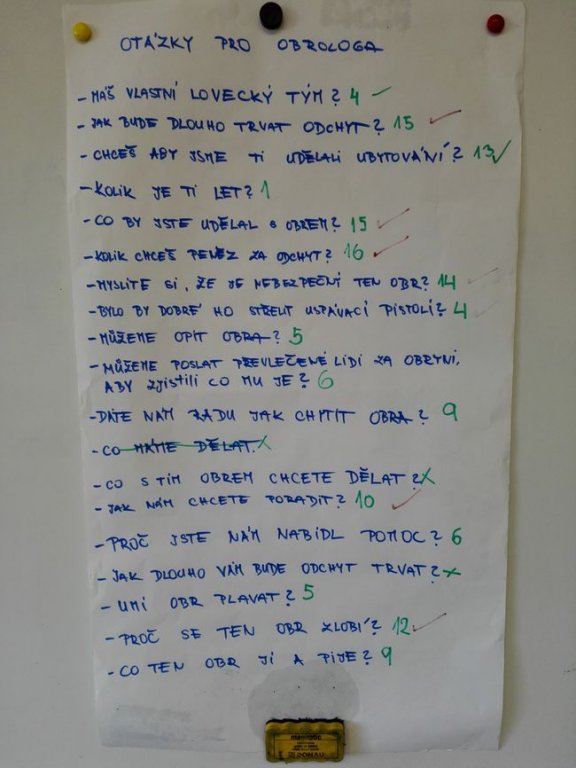 OTÁZKY PRO OBROLOGA
- MÁŠ VLASTNÍ LOVECKÝ TÝM? 4 ✓
- JAK BUDE DLOUHO TRVAT ODCHYT? 15 ✓
- CHCEŠ ABY JSME TI UDĚLALI UBYTOVÁNÍ? 13 ✓
- KOLIK JE TI LET? 1
- CO BY JSTE UDĚLAL S OBREM? 15 ✓
- KOLIK CHCEŠ PENĚZ ZA ODCHYT? 16 ✓
- MYSLÍTE SI, ŽE JE NEBEZPEČNÝ TEN OBR? 14 ✓
- BYLO BY DOBRÉ HO STŘELIT USPÁVACÍ PISTOLÍ? 4 ✓
- MŮŽEME OPÍT OBRA? 5
- MŮŽEME POSLAT PŘEVLEČENÉ LIDI ZA OBRYNI,
ABY ZJISTILI CO MU JE? 6
- DÁTE NÁM RADU JAK CHYTIT OBRA? 9
- CO MÁME DĚLAT. X
- CO S TÍM OBREM CHCETE DĚLAT? X
- JAK NÁM CHCETE PORADIT? 10 ✓
- PROČ JSTE NÁM NABÍDL POMOC? 6
- JAK DLOUHO VÁM BUDE ODCHYT TRVAT? X
- UMÍ OBR PLAVAT? 5
- PROČ SE TEN OBR ZLOBÍ? 12 ✓
- CO TEN OBR JÍ A PIJE? 9
DONAU